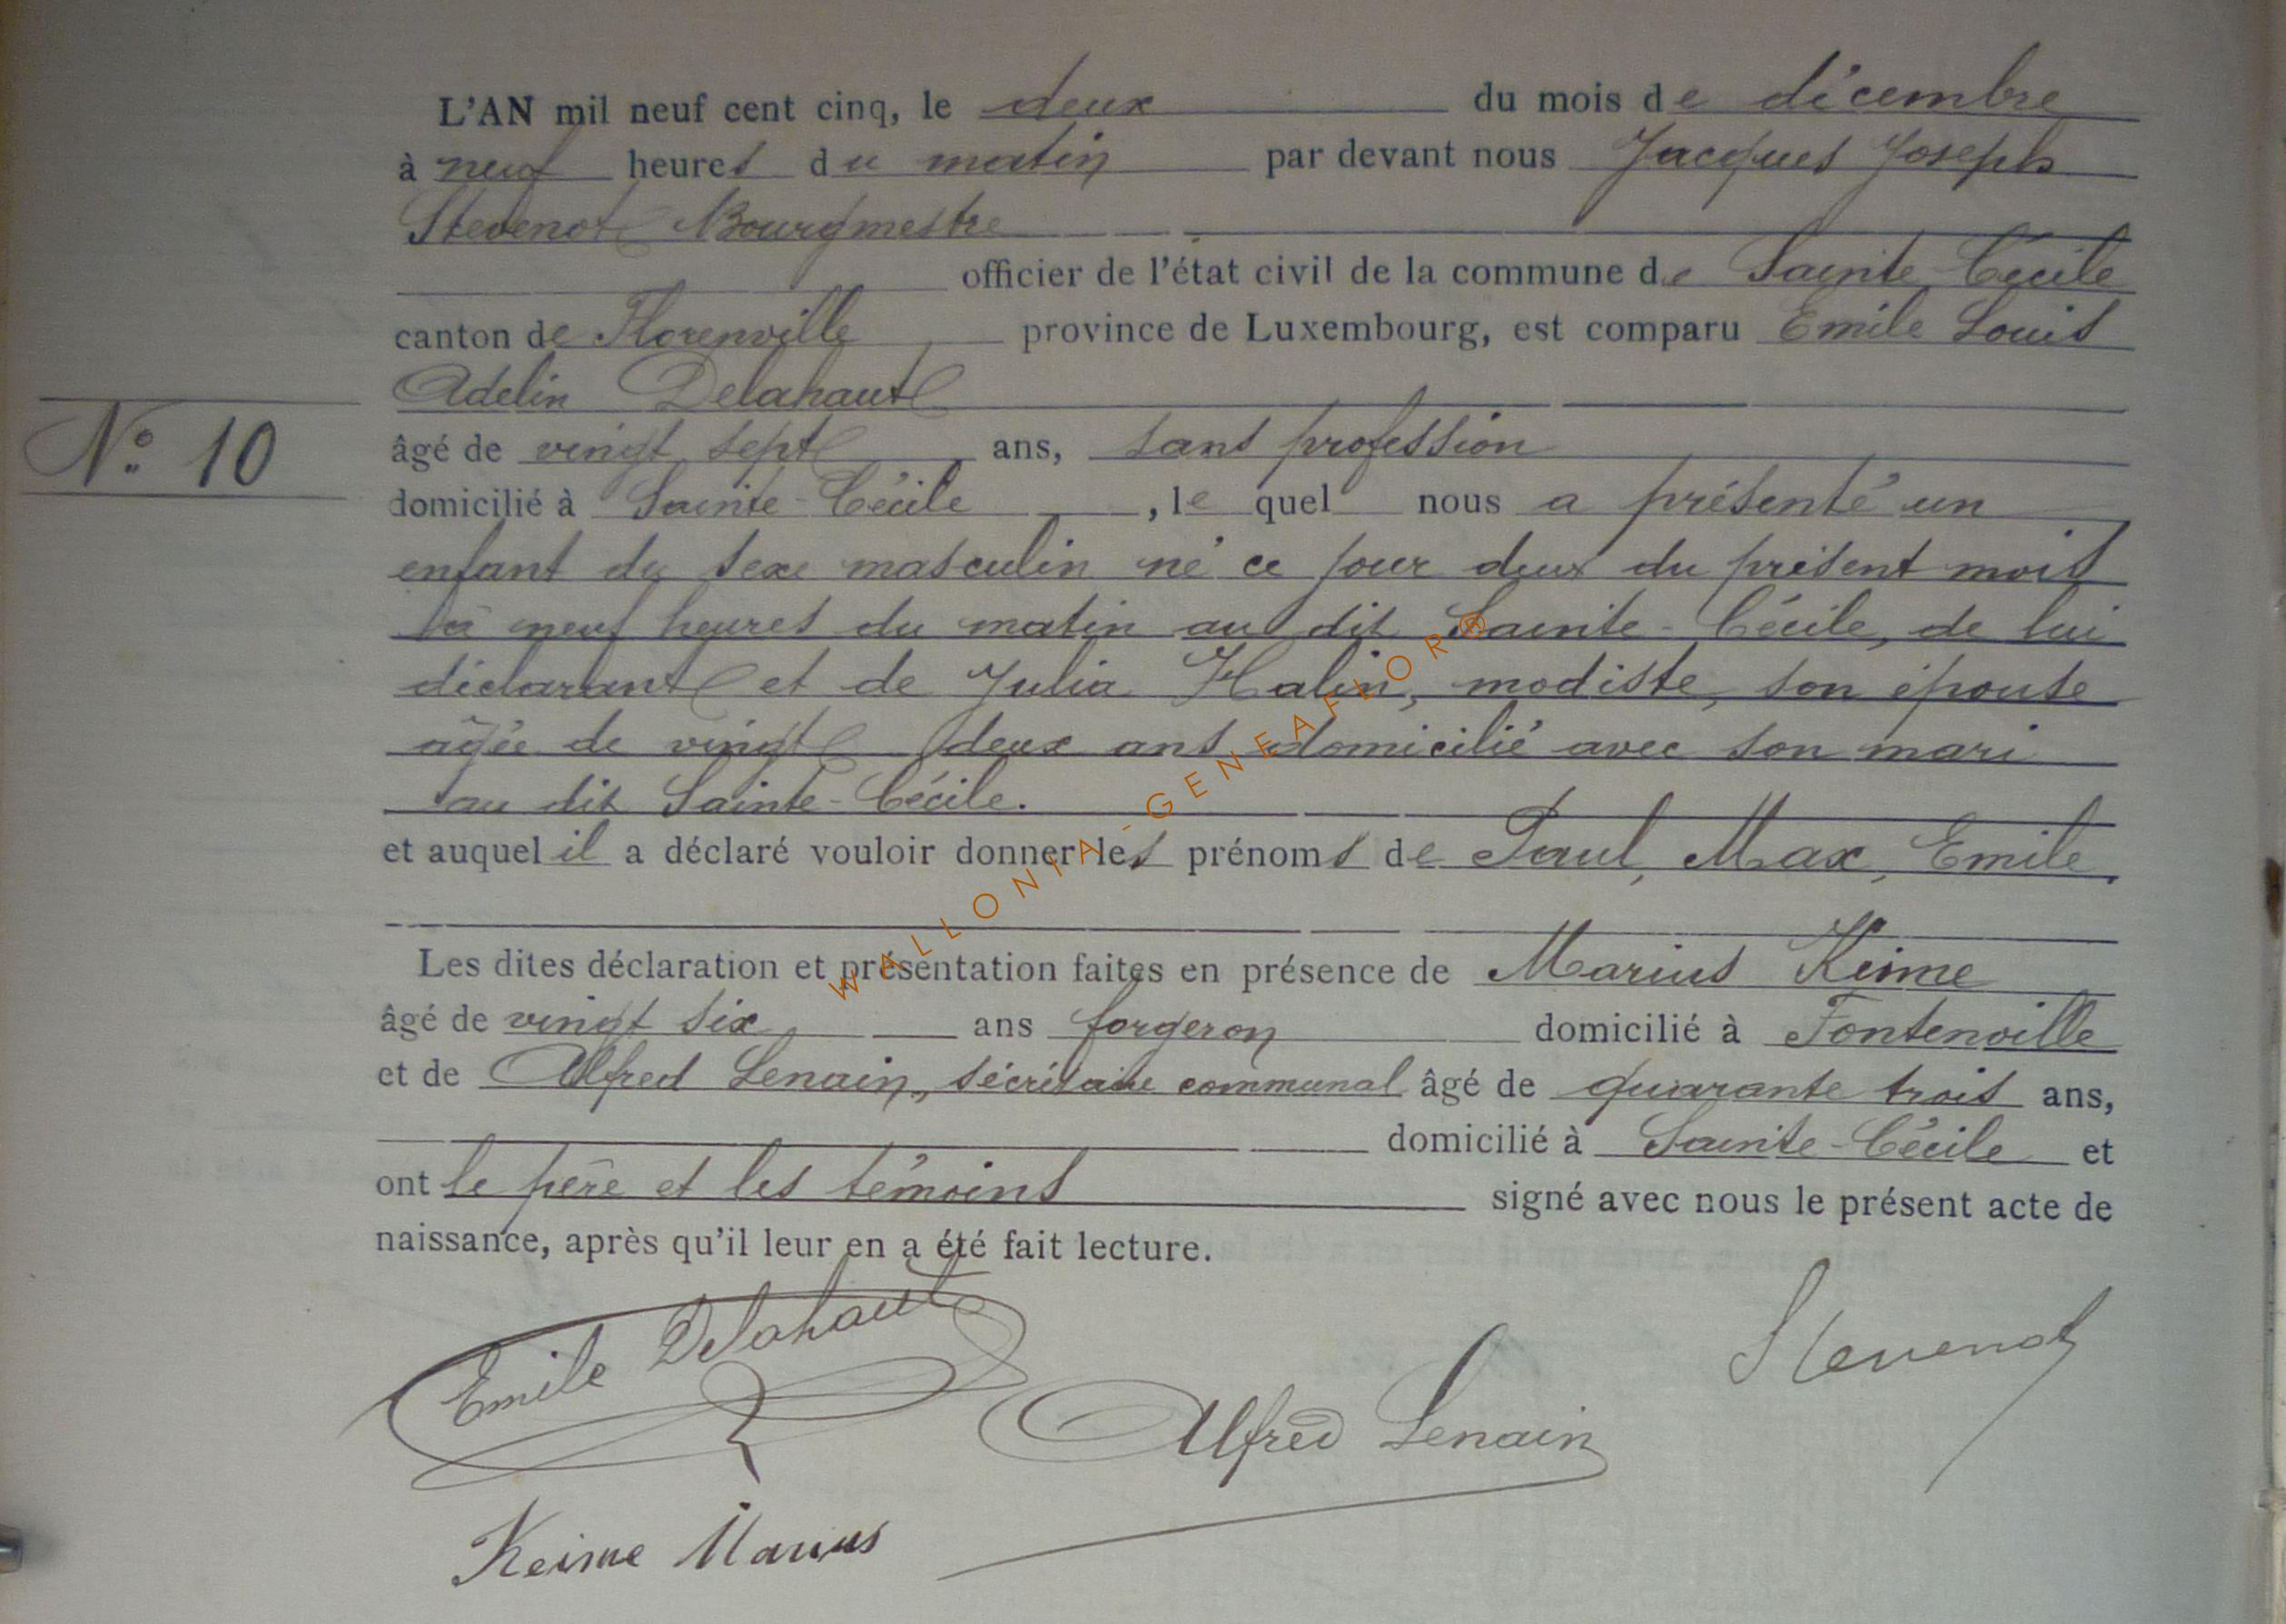 L'AN mil neuf cent cinq, le deux du mois de décembre
à neuf heures du matin par devant nous Jacques Joseph
Stevenot Bourgmestre
officier de l'état civil de la commune de Sainte-Cécile
canton de Florenville province de Luxembourg, est comparu Emile Louis
Adelin Delahaut
N° 10
âgé de vingt sept ans, sans profession
domicilié à Sainte-Cécile, le quel nous a présenté un
enfant du sexe masculin né ce jour deux du présent mois
à neuf heures du matin au dit Sainte-Cécile, de lui
déclarant et de Julia Halin, modiste, son épouse
agée de vingt deux ans domicilié avec son mari
au dit Sainte-Cécile.
et auquel il a déclaré vouloir donner les prénoms de Paul, Max, Emile.
Les dites déclaration et présentation faites en présence de Marius Keime
âgé de vingt six ans forgeron domicilié à Fontenoille
et de Alfred Lenain, sécrétaire communal âgé de quarante trois ans,
domicilié à Sainte-Cécile et
ont le père et les témoins signé avec nous le présent acte de
naissance, après qu'il leur en a été fait lecture.
Emile Delahaut
Stevenot
Alfred Lenain
Keime Marius
WALLONIA-GENEAFLOR®